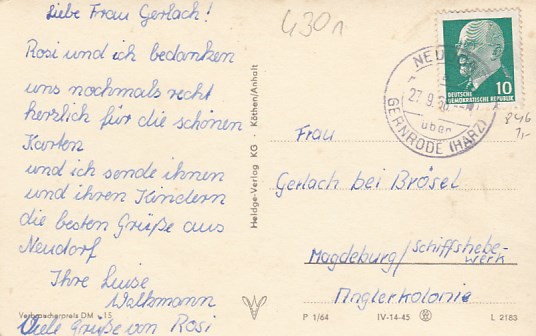 Liebe Frau Gerlach!
Rosi und ich bedanken
uns nochmals recht
herzlich für die schönen
Karten
und ich sende ihnen
und ihren Kindern
die besten Grüße aus
Neudorf
Ihre Luise
Waltsmann
Viele Grüße von Rosi
Verbraucherpreis DM -.15
Heldge-Verlag KG · Köthen/Anhalt
430n
NEU
27.9.
über
GERNRODE (HARZ)
10
DEUTSCHE
DEMOKRATISCHE REPUBLIK
846
1,-
Frau
Gerlach bei Brösel
Magdeburg/Schiffshebe-
werk
Anglerkolonie
P 1/64 IV-14-45 L 2183